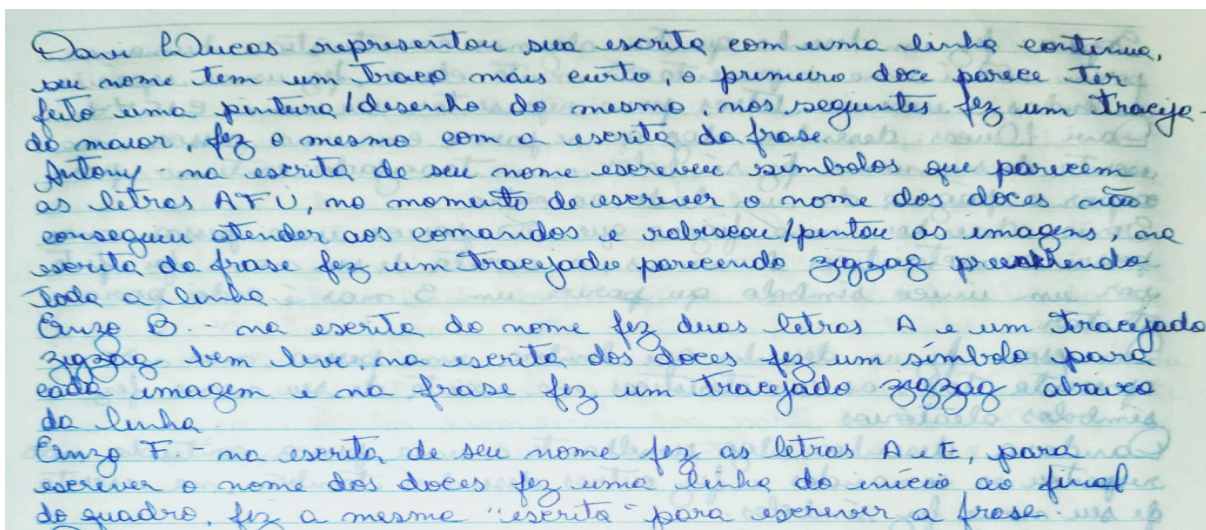 Davi Lucas representou sua escrita com uma linha contínua,
seu nome tem um traço mais curto, o primeiro doce parece ter
feito uma pintura/desenho do mesmo, nos seguintes fez um traceja-
do maior, fez o mesmo com a escrita da frase.
Antony - na escrita de seu nome escreveu símbolos que parecem
as letras AFU, no momento de escrever o nome dos doces não
conseguiu atender aos comandos e rabiscou/pintou as imagens, na
escrita da frase fez um tracejado parecendo zigzag preenchendo
toda a linha.
Enzo B. - na escrita do nome fez duas letras A e um tracejado
zigzag bem leve, na escrita dos doces fez um símbolo para
cada imagem e na frase fez um tracejado zigzag abaixo
da linha.
Enzo F. - na escrita de seu nome fez as letras A e E, para
escrever o nome dos doces fez uma linha do início ao final
do quadro, fez a mesma "escrita" para escrever a frase.